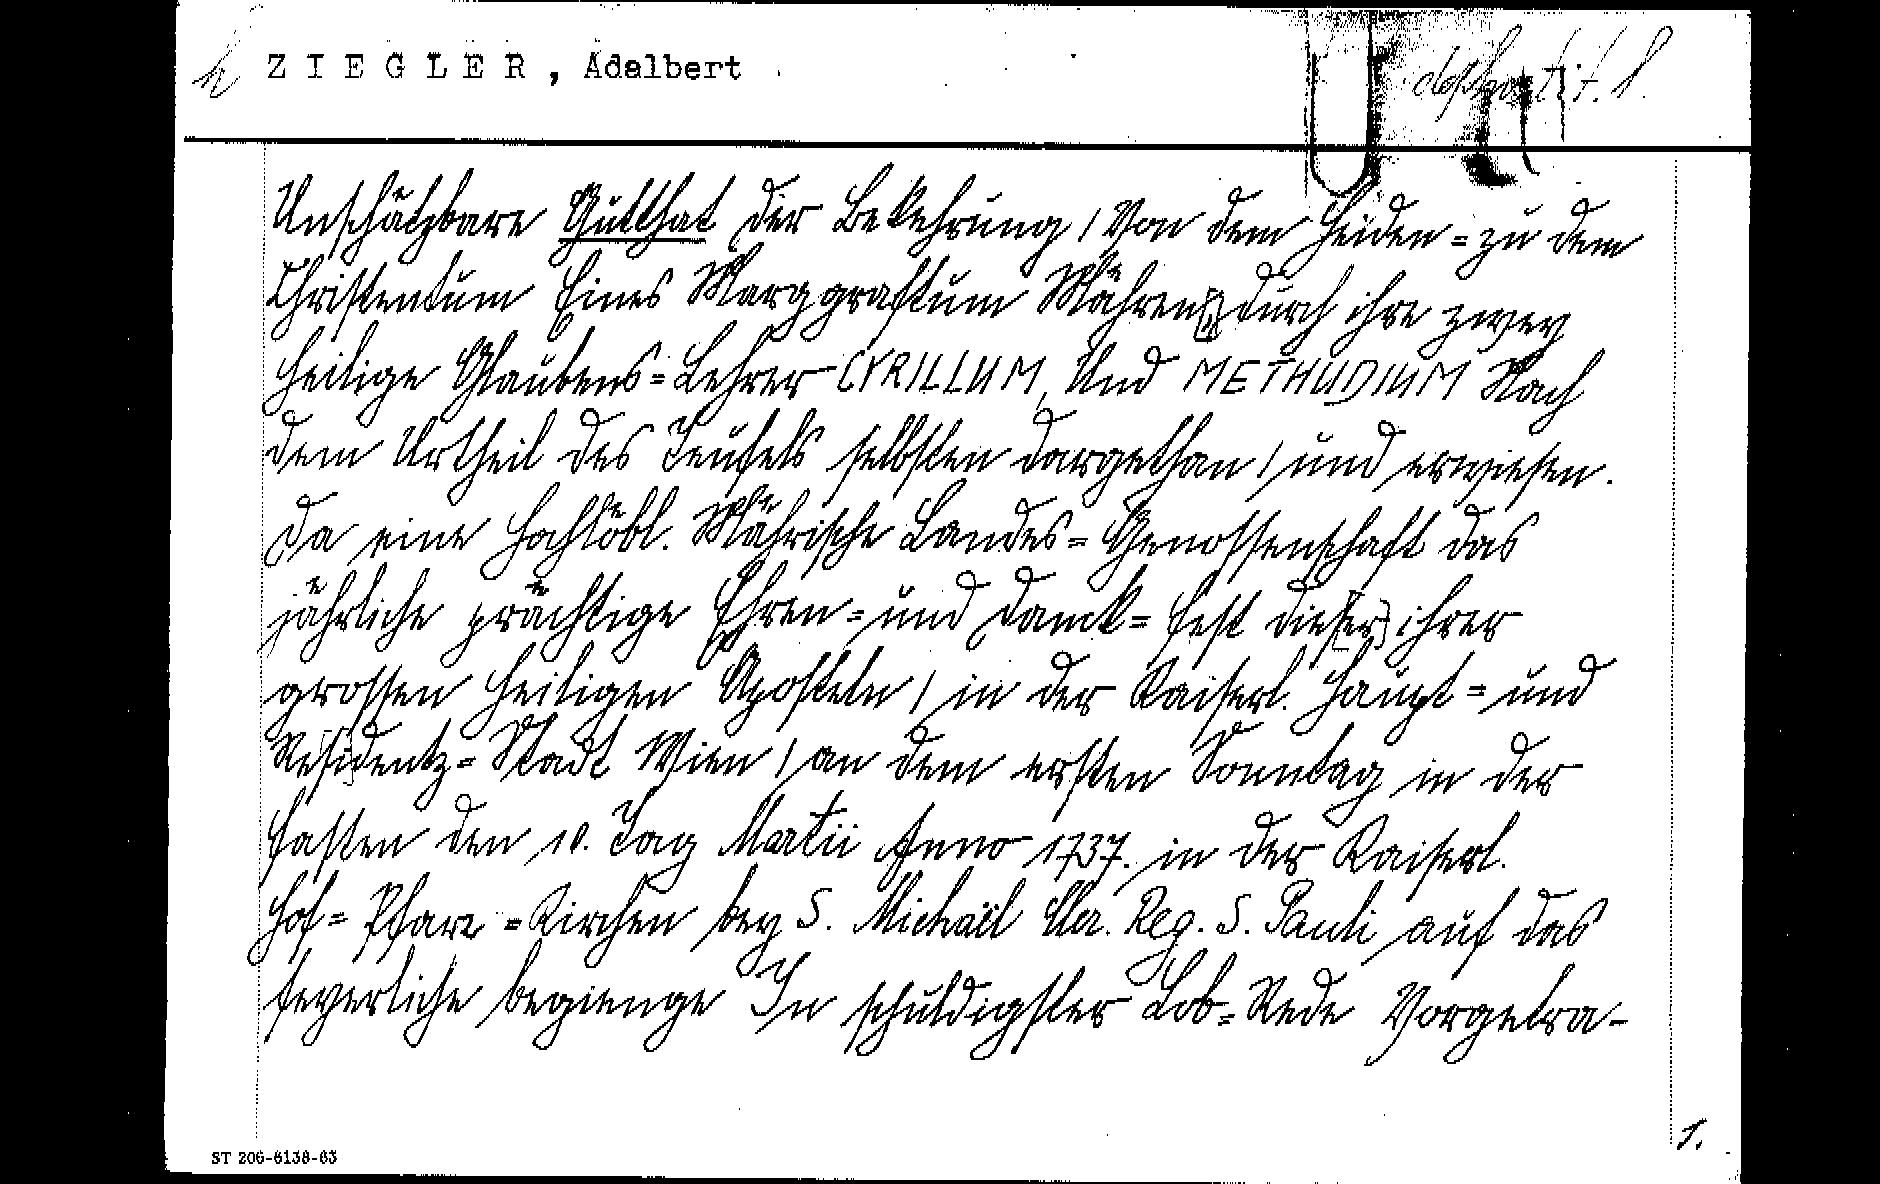 ZIEGLER, Adelbert
Unschätzbare Gutthat der Bekehrung / Von dem Heiden= zu dem
Christentum Eines Marggraftum Mähren[s] durch ihre zwey
Heilige Glaubens=Lehrer CYRILLUM, Und METHUDIUM Nach
dem Urtheil des Teufels selbsten dargethan / und erwiesen.
Da eine Hochlöbl. Mährische Landes=Genossenschaft das
jährliche prächtige Ehren= und Danck=Fest dies[er] ihrer
grossen Heiligen Aposteln / in der Kaiserl. Haupt= und
Re[si]dentz=Stadt Wien / an dem ersten Sonntag in der
Fasten den 10. Tag Martii Anno 1737. in der Kaiserl.
Hof=Pfarr=Kirchen bey S. Michaël Cler. Reg. S. Pauli auf das
feyerliche begienge In schuldigster Lob=Rede Vorgetra-
1.
ST 206-6138-63